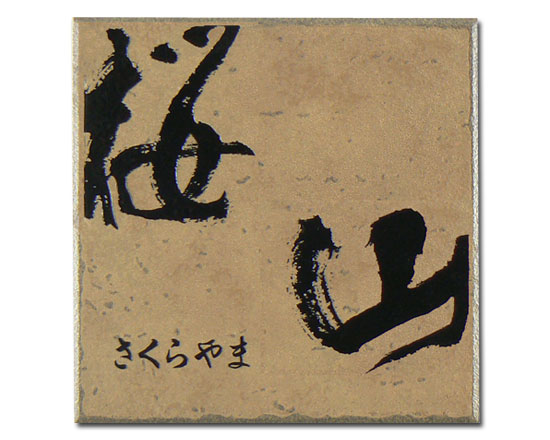 桜
山
さくらやま